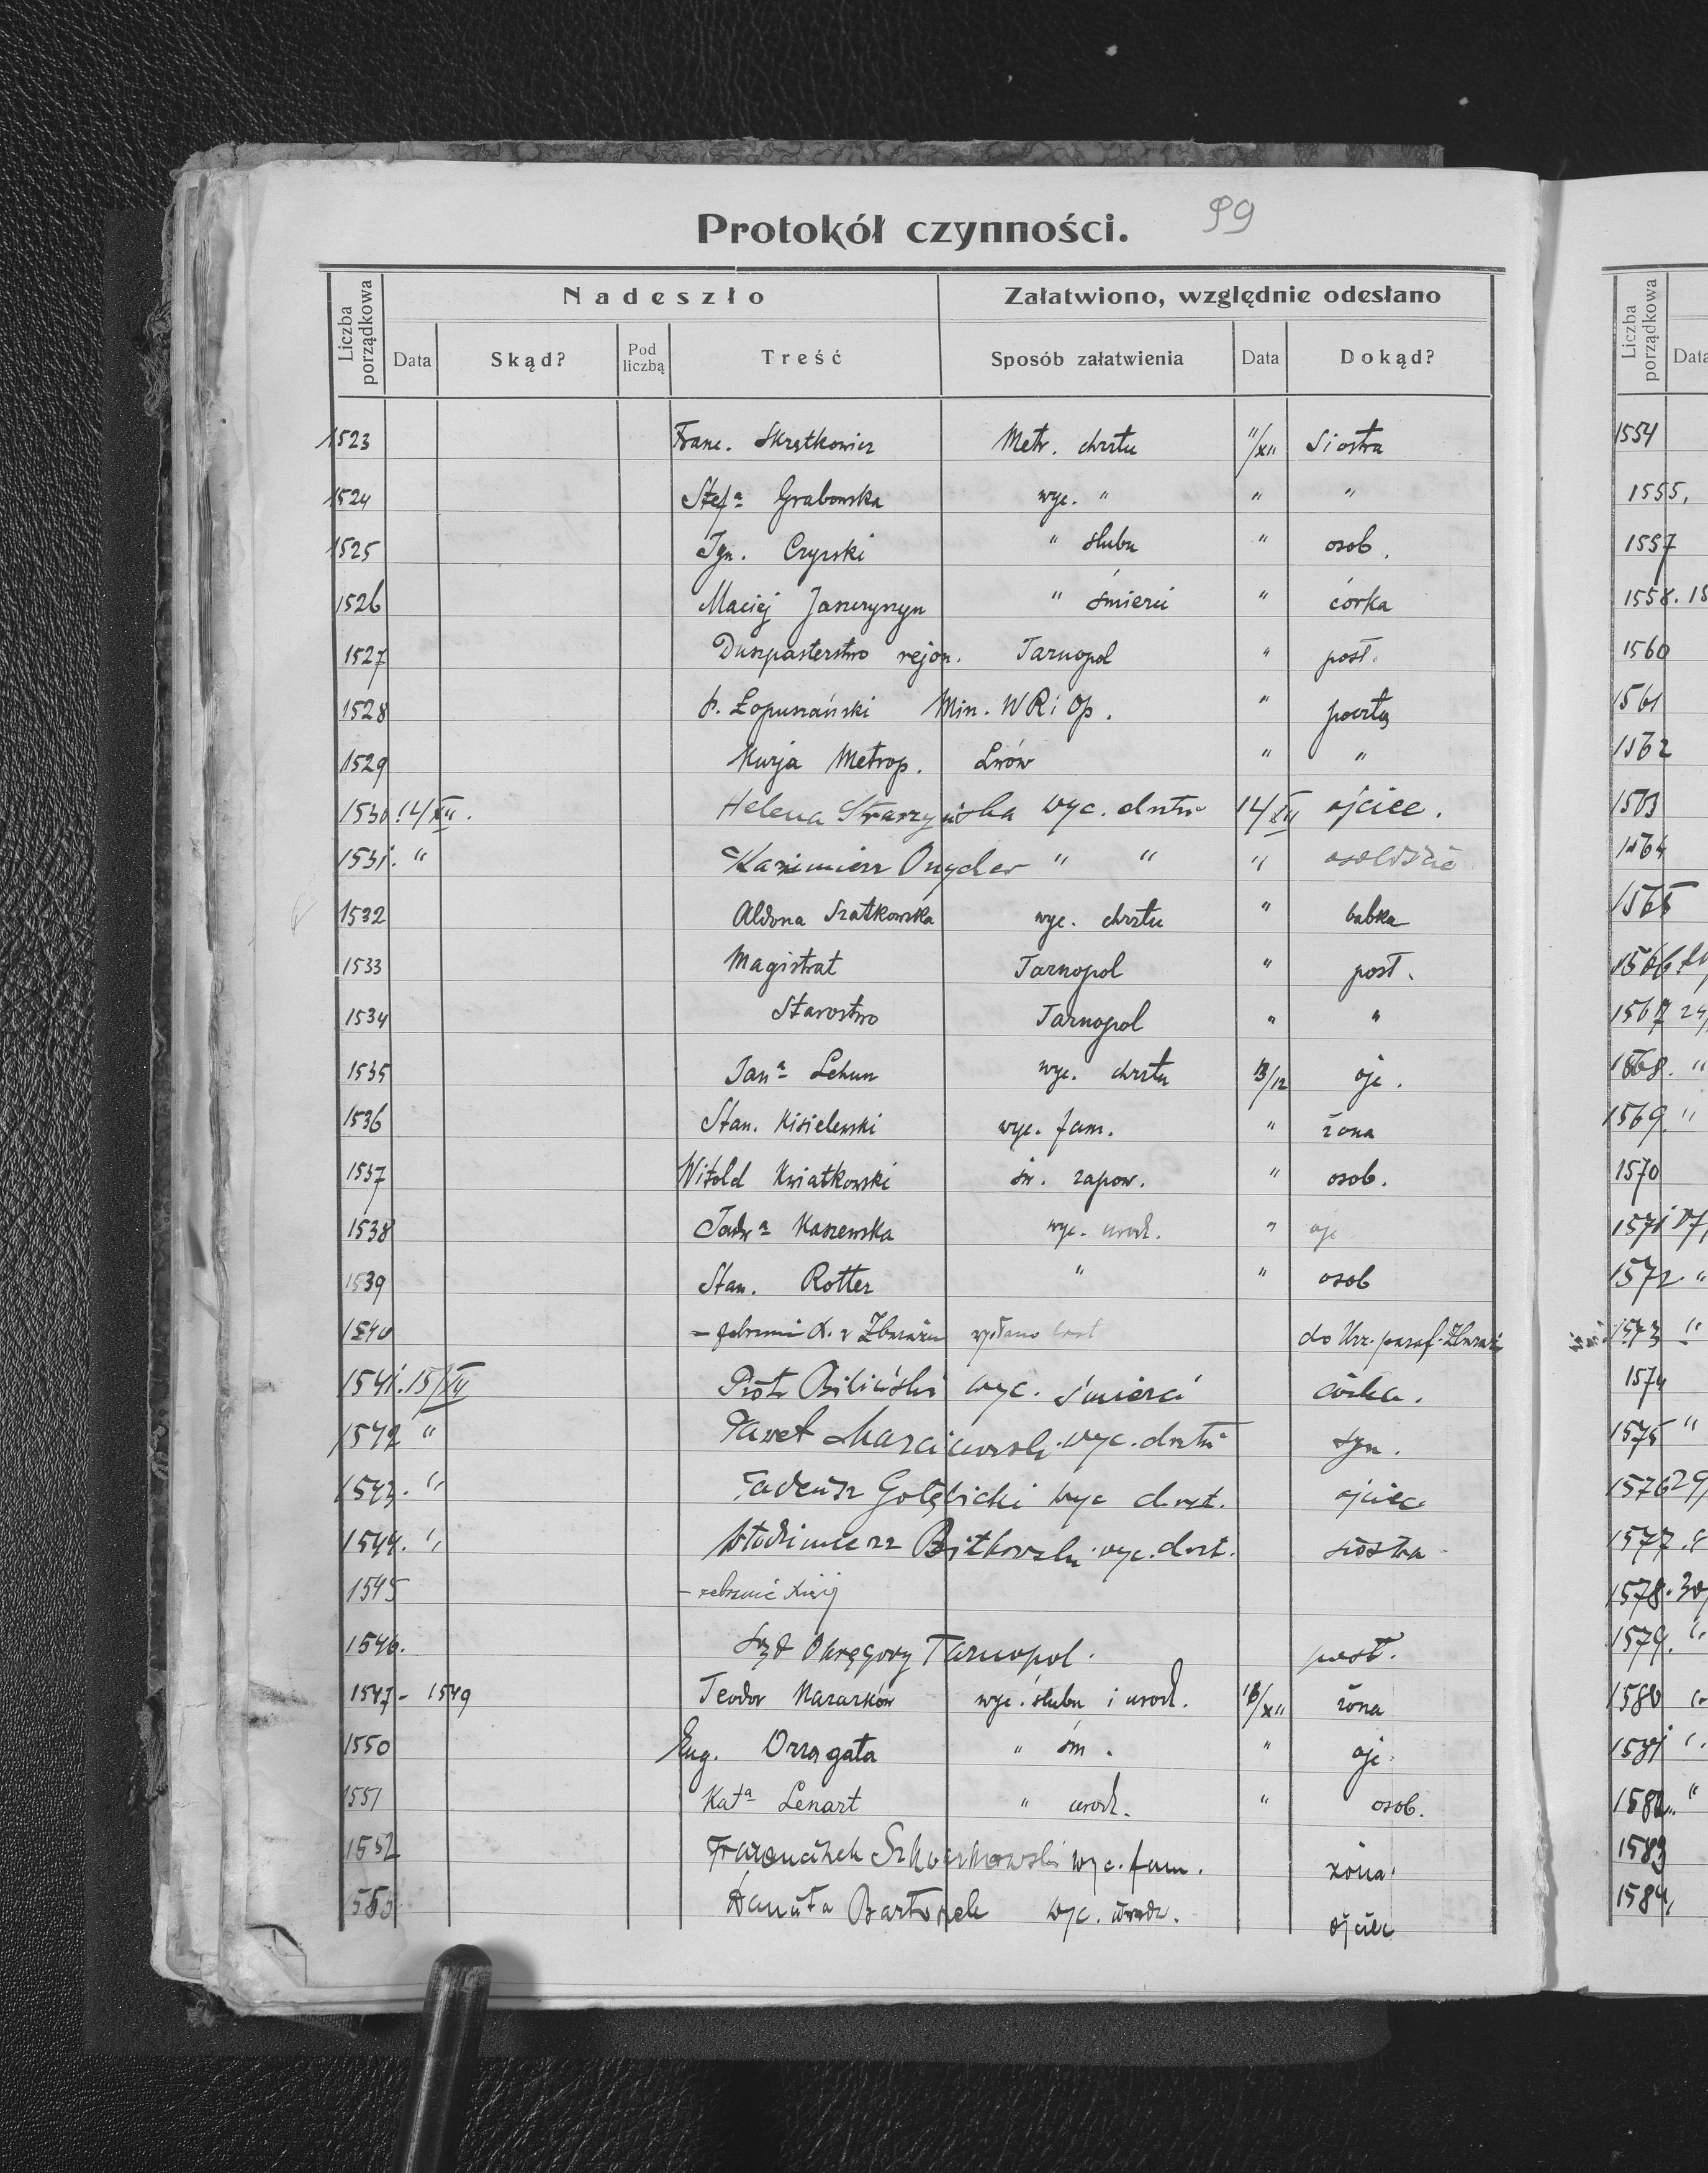 99
Protokół czynności.
Liczba porządkowa
Nadeszło
Załatwiono, względnie odesłano
Data Skąd? Pod liczbą Treść Sposób załatwienia Data Dokąd?
1523 Franc. Metr. chrztu 11/XII Siostra
1524 Stefa Grabowska wyc. " " "
1525 Ign. Czyrski " ślubu " osob.
1526 Maciej Janczyszyn " śmierci " córka
1527 Duszpasterstwo rejon. Tarnopol " post.
1528 Łopuszański Min. WRiOp. " pocztą
1529 Kurja Metrop. Lwów " "
1530 14/XII. Helena Starzyńska wyc. chrztu 14/XII ojciec.
1531. " Kazimierz " " "
1532 Aldona Szatkowska wyc. chrztu " babka
1533 Magistrat Tarnopol " post.
1534 Starostwo Tarnopol " "
1535 Jana Lehun wyc. chrztu 13/12 ojc.
1536 Stan. Kisielewski wyc. fam. " żona
1537 Witold Kwiatkowski św. zapow. " osob.
1538 Jadwa Kaszewska wyc. urodz. " ojc
1539 Stan. Rotter " " osob
1540 wysłano do Urz. paraf. Zbaraż
1541. 15/XII Piotr Biliński wyc. śmierci córka.
1542 " Paweł wyc. chrztu syn.
1543. " Tadeusz Gołębicki wyc chrzt. ojciec
1544. " Włodzimierz Bitkowski wyc. chrzt. siostra
1545
1546. Sąd Okręgowy Tarnopol. post.
1547 - 1549 Teodor Nazarków wyc. ślubu i urodz. 16/XII żona
1550 Eug. " śm. " ojc.
1551 Kata Lenart " urodz. " osob.
1552 Franciszek wyc. fam. żona
1553 Danuta wyc. urodz. ojciec
Liczba porządkowa
Data
1554
1555,
1557
1558.
1560
1561
1562
1563
1564
1565
1566
1567
1568. "
1569. "
1570
1571
1572. "
1573 "
1574
1575 "
1576
1577.
1578.
1579. "
1580
1581
1582. "
1583
1584,